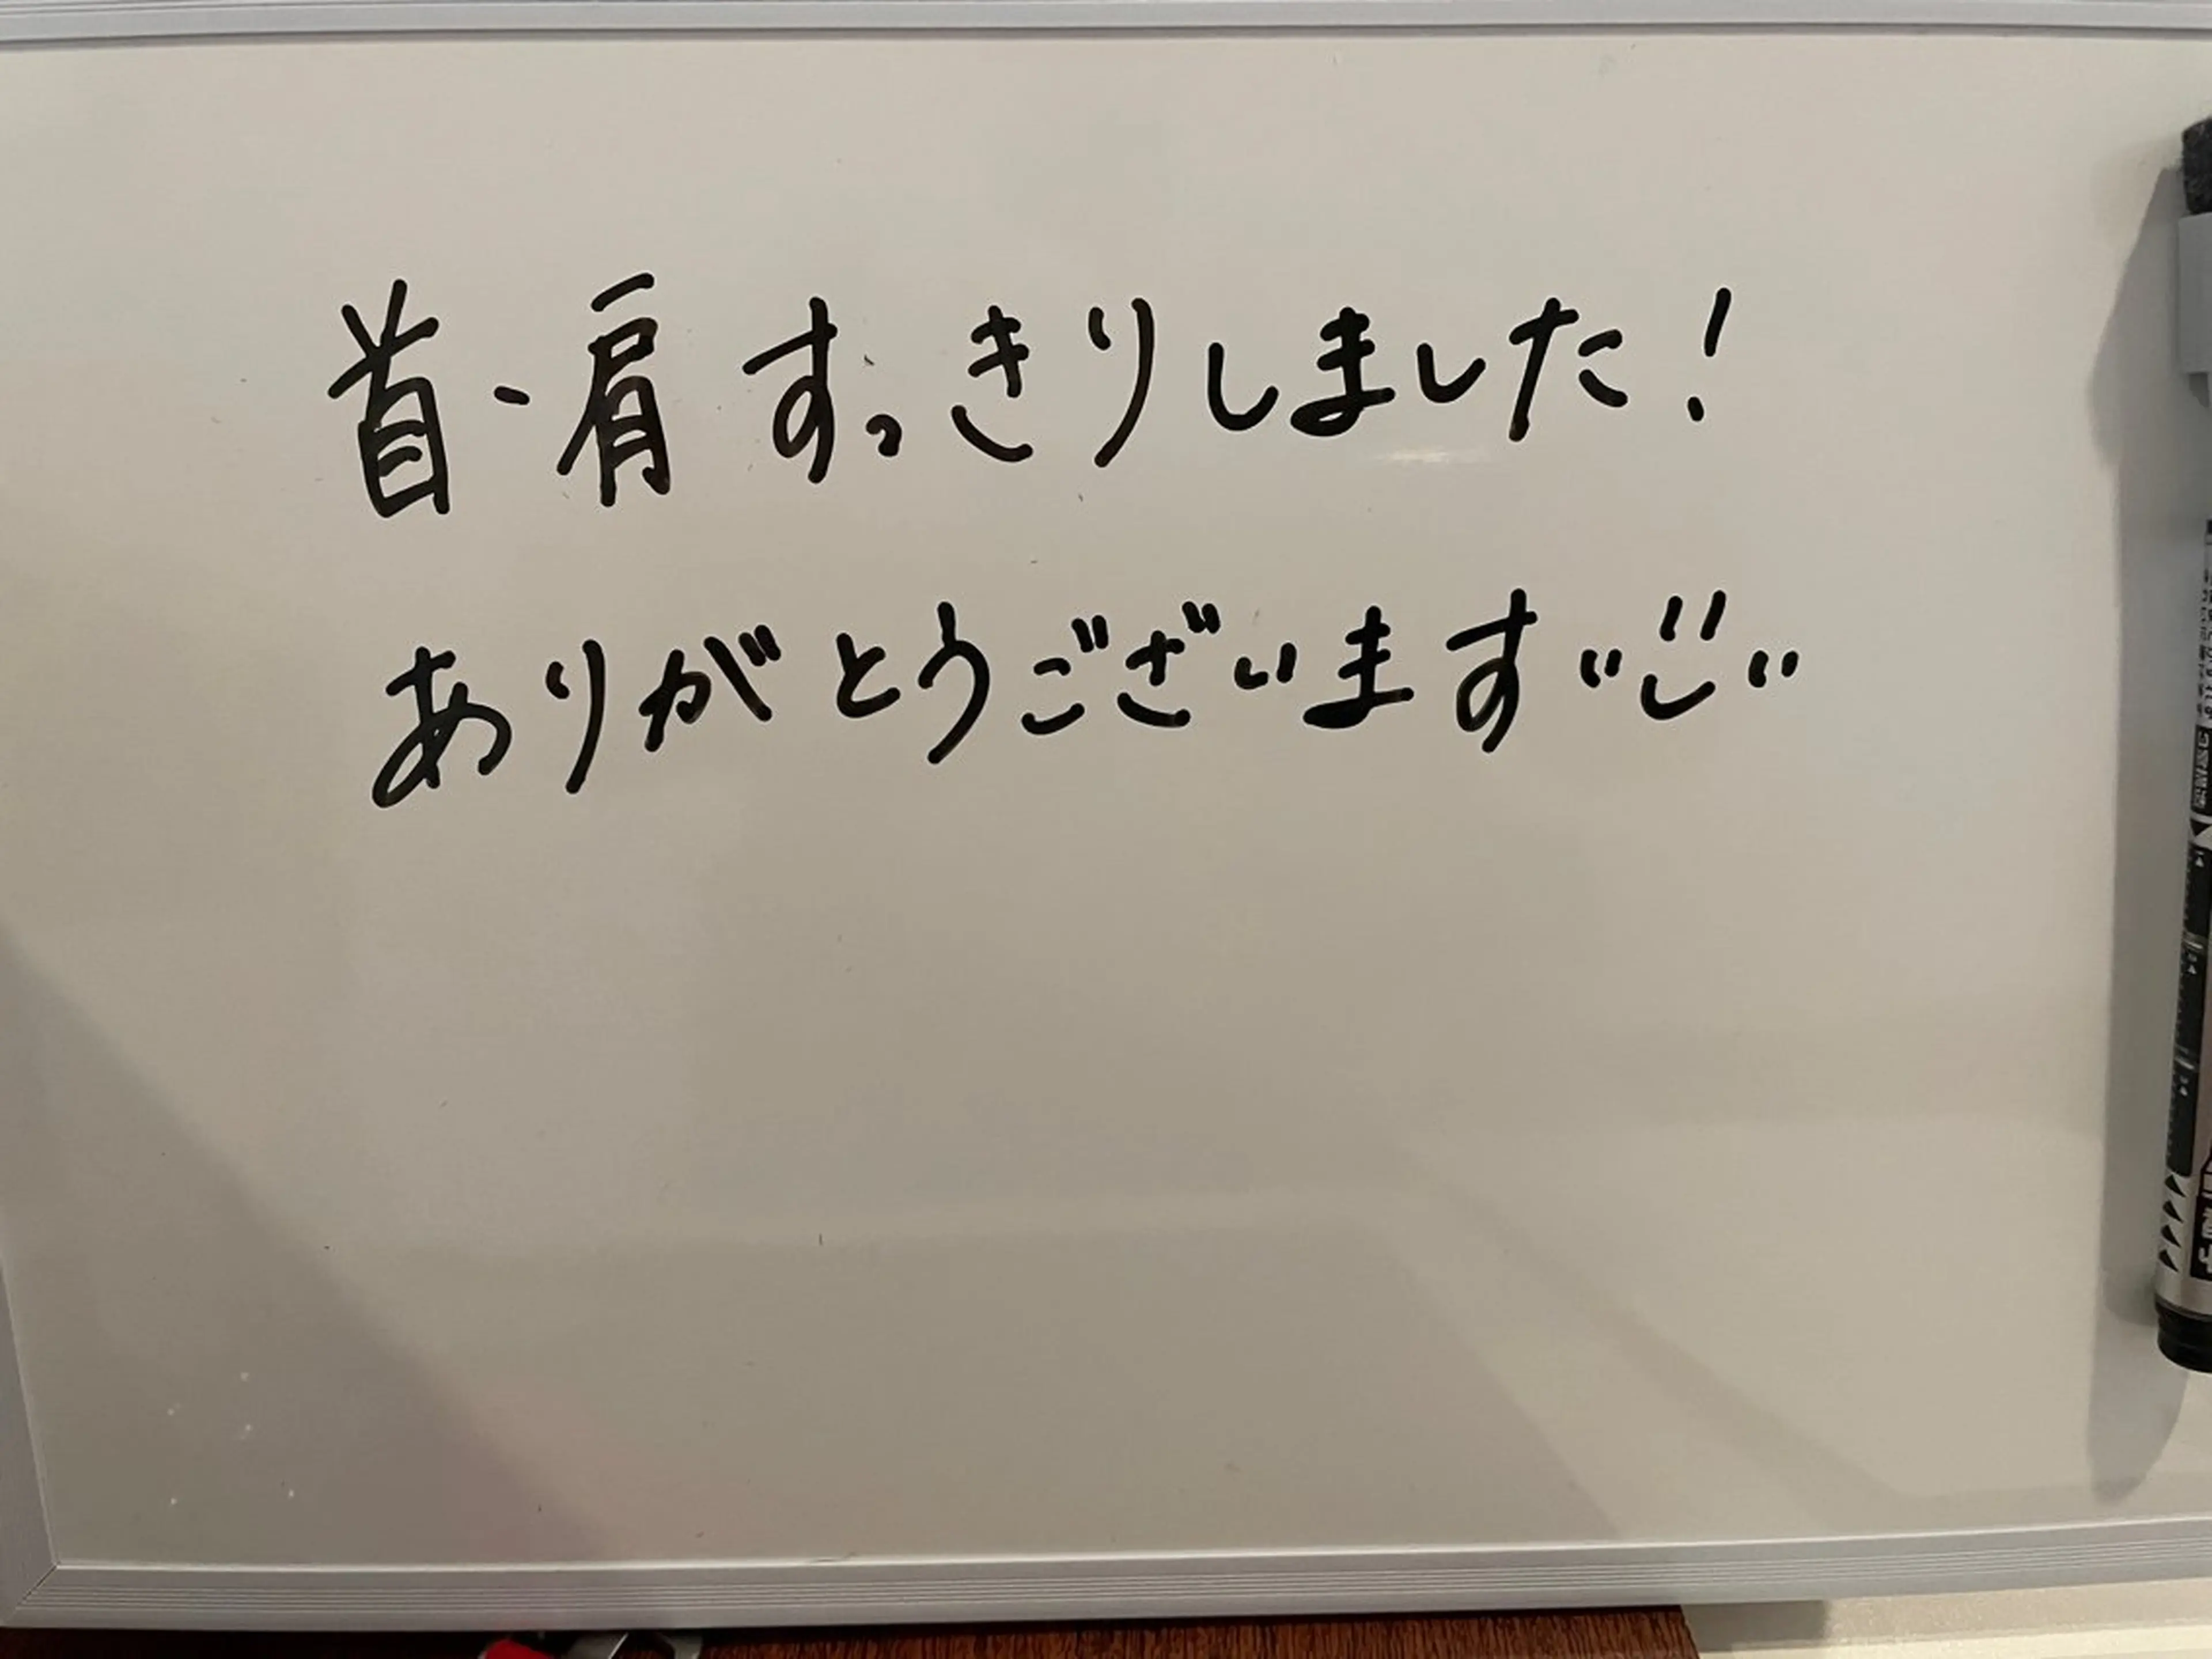 首・肩 すっきりしました!
ありがとうございます